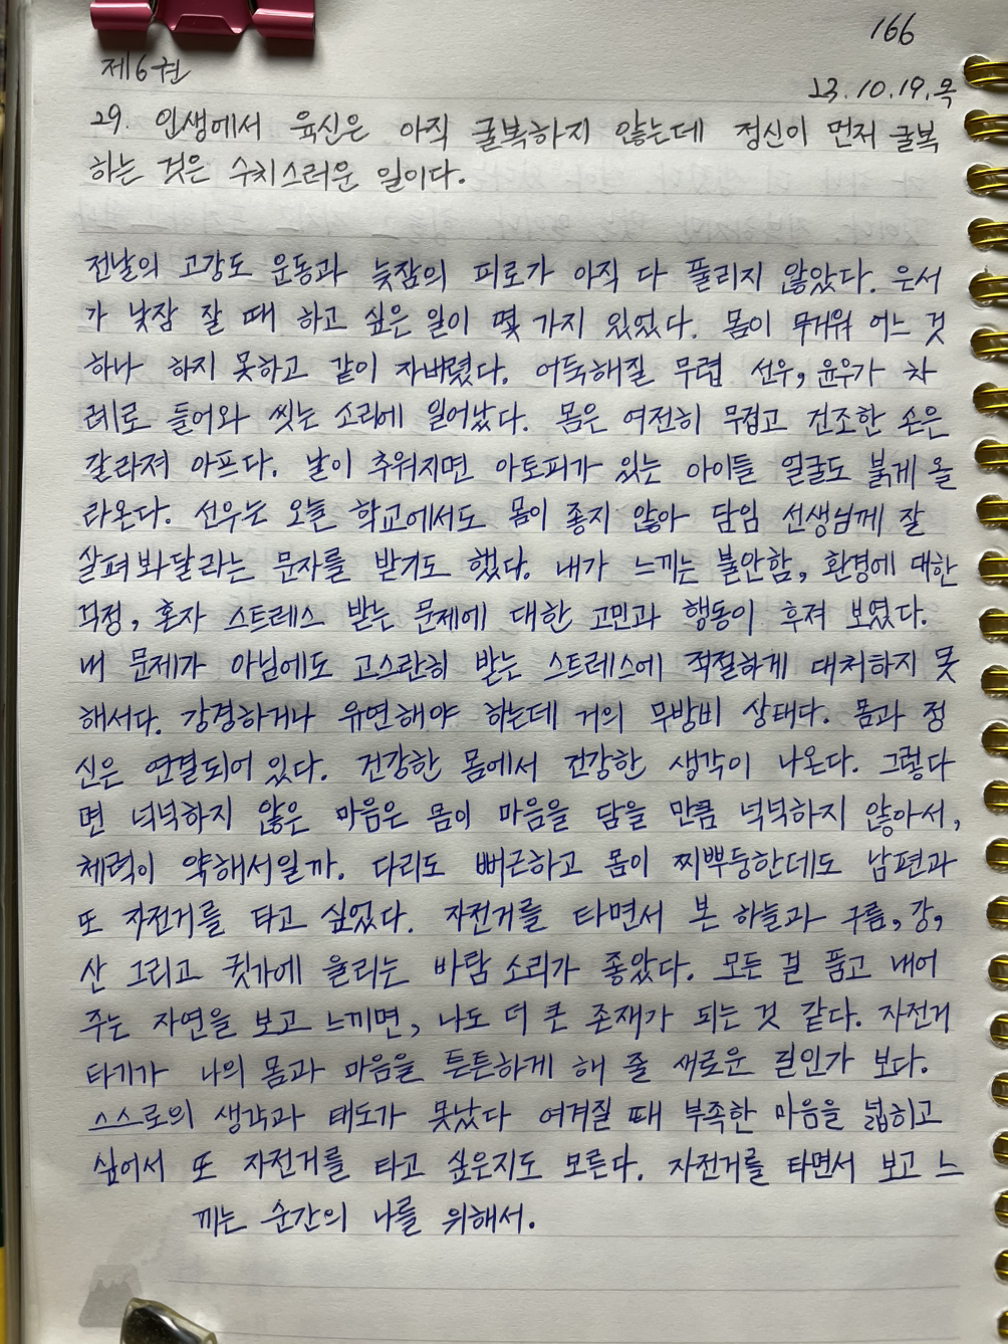 166
제6권
23.10.19.목
29. 인생에서 육신은 아직 굴복하지 않는데 정신이 먼저 굴복
하는 것은 수치스러운 일이다.
전날의 고강도 운동과 늦잠의 피로가 아직 다 풀리지 않았다. 은서
가 낮잠 잘 때 하고 싶은 일이 몇 가지 있었다. 몸이 무거워 어느 것
하나 하지 못하고 같이 자버렸다. 어둑해질 무렵 선우, 윤우가 차
례로 들어와 씻는 소리에 일어났다. 몸은 여전히 무겁고 건조한 손은
갈라져 아프다. 날이 추워지면 아토피가 있는 아이들 얼굴도 붉게 올
라온다. 선우는 오늘 학교에서도 몸이 좋지 않아 담임 선생님께 잘
살펴봐달라는 문자를 받기도 했다. 내가 느끼는 불안함, 환경에 대한
걱정, 혼자 스트레스 받는 문제에 대한 고민과 행동이 후져 보였다.
내 문제가 아님에도 고스란히 받는 스트레스에 적절하게 대처하지 못
해서다. 강경하거나 유연해야 하는데 거의 무방비 상태다. 몸과 정
신은 연결되어 있다. 건강한 몸에서 건강한 생각이 나온다. 그렇다
면 넉넉하지 않은 마음은 몸이 마음을 담을 만큼 넉넉하지 않아서,
체력이 약해서일까. 다리도 뻐근하고 몸이 찌뿌둥한데도 남편과
또 자전거를 타고 싶었다. 자전거를 타면서 본 하늘과 구름, 강,
산 그리고 귓가에 울리는 바람 소리가 좋았다. 모든 걸 품고 내어
주는 자연을 보고 느끼면, 나도 더 큰 존재가 되는 것 같다. 자전거
타기가 나의 몸과 마음을 튼튼하게 해 줄 새로운 길인가 보다.
스스로의 생각과 태도가 못났다 여겨질 때 부족한 마음을 넓히고
싶어서 또 자전거를 타고 싶은지도 모른다. 자전거를 타면서 보고 느
끼는 순간의 나를 위해서.